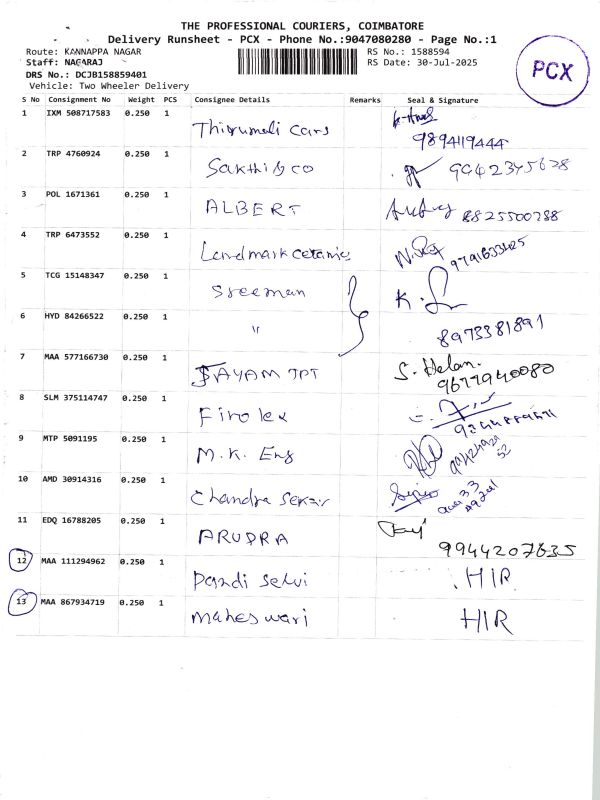 THE PROFESSIONAL COURIERS, COIMBATORE
Delivery Runsheet - PCX - Phone No.:9047080280 - Page No.:1
Route: KANNAPPA NAGAR
RS No.: 1588594
Staff: NAGARAJ
RS Date: 30-Jul-2025
DRS No.: DCJB158859401
Vehicle: Two Wheeler Delivery
PCX
S No Consignment No Weight PCS Consignee Details Remarks Seal & Signature
1 IXM 508717583 0.250 1 Thirumali Cars 9894119444
2 TRP 4760924 0.250 1 Sakthi & co 9942345628
3 POL 1671361 0.250 1 ALBERT 8825500788
4 TRP 6473552 0.250 1 Landmark ceramic
5 TCG 15148347 0.250 1 Sreeman
6 HYD 84266522 0.250 1 " 8973381891
7 MAA 577166730 0.250 1 JAYAM TPT S. Helan. 9677940080
8 SLM 375114747 0.250 1 Firolex
9 MTP 5091195 0.250 1 M.K. Eng
10 AMD 30914316 0.250 1 Chandra Sekar
11 EDQ 16788205 0.250 1 ARUDRA 9944207635
12 MAA 111294962 0.250 1 Pandi Selvi HIR
13 MAA 867934719 0.250 1 maheswari HIR